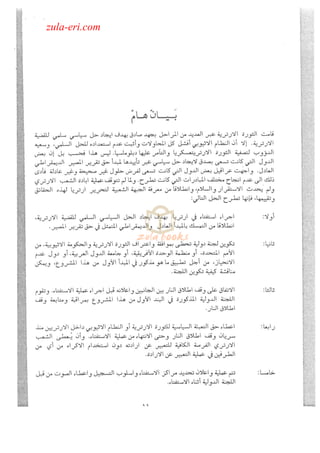 zula-eri.com
بـيـان هـام
قامت الثورة الارترية عبر العديد من المراحل بجهد صادق بهدف ايجاد حل سياسي سلمي للقضية
الارترية. إلا أن النظام الاثيوبي أفشل كل المحاولات وأثبت عدم استعداده للحل السلمي، وسعيه
الدؤوب لتصفية الثورة الارترية عسكريا والتآمر عليها دبلوماسيا. ليس هذا فحسب بل إن بعض
الدول التي كانت تسعى بصدق لايجاد حل سياسي عبر تأييدها لمبدأ حق تقرير المصير الديمقراطي
العادل، واجهت عراقيل بعض الدول التي كانت تسعى لفرض حلول غير صحيحة وغير عادلة فأدى
ذلك الى عدم انجاح مختلف المبادرات التي كانت تطرح. ولما لم تتوقف عملية ابادة الشعب الارتري
ولم يحدث الاستقرار والسلام، وانطلاقا من معرفة الجبهة الشعبية لتحرير ارتريا لهذه الحقائق
وتقييمها، فإنها تطرح الحل التالي:
أولا: اجراء استفتاء في ارتريا بهدف ايجاد الحل السياسي السلمي للقضية الارترية،
انطلاقا من التمسك بالمبدأ العادل والديمقراطي المتمثل في حق تقرير المصير.
ثانيا: تكوين لجنة دولية تحظى بموافقة واعتراف الثورة الارترية والحكومة الاثيوبية، من
الأمم المتحدة، أو منظمة الوحدة الأفريقية، أو جامعة الدول العربية، أو دول عدم
الانحياز، من أجل تطبيق ما هو مذكور في المبدأ الأول من هذا المشروع، ويمكن
مناقشة كيفية تكوين اللجنة.
ثالثا: الاتفاق على وقف اطلاق النار بين الجانبين واعلانه قبل اجراء عملية الاستفتاء. وتقوم
اللجنة الدولية المذكورة في البند الأول من هذا المشروع بمراقبة ومتابعة وقف
اطلاق النار.
رابعا: اعطاء حق التعبئة السياسية للثورة الارترية أو النظام الاثيوبي داخل الارتريين منذ
سريان وقف اطلاق النار وحتى الانتهاء من عملية الاستفتاء. وأن يُعطى الشعب
الارتري الفرصة الكافية للتعبير عن ارادته دون استخدام الاكراه من أي من
الطرفين في عملية التعبير عن الارادة.
خامسا: تتم عملية واعلان تحديد مراكز الاستفتاء واسلوب التسجيل واعطاء الصوت من قبل
اللجنة الدولية أثناء الاستفتاء.